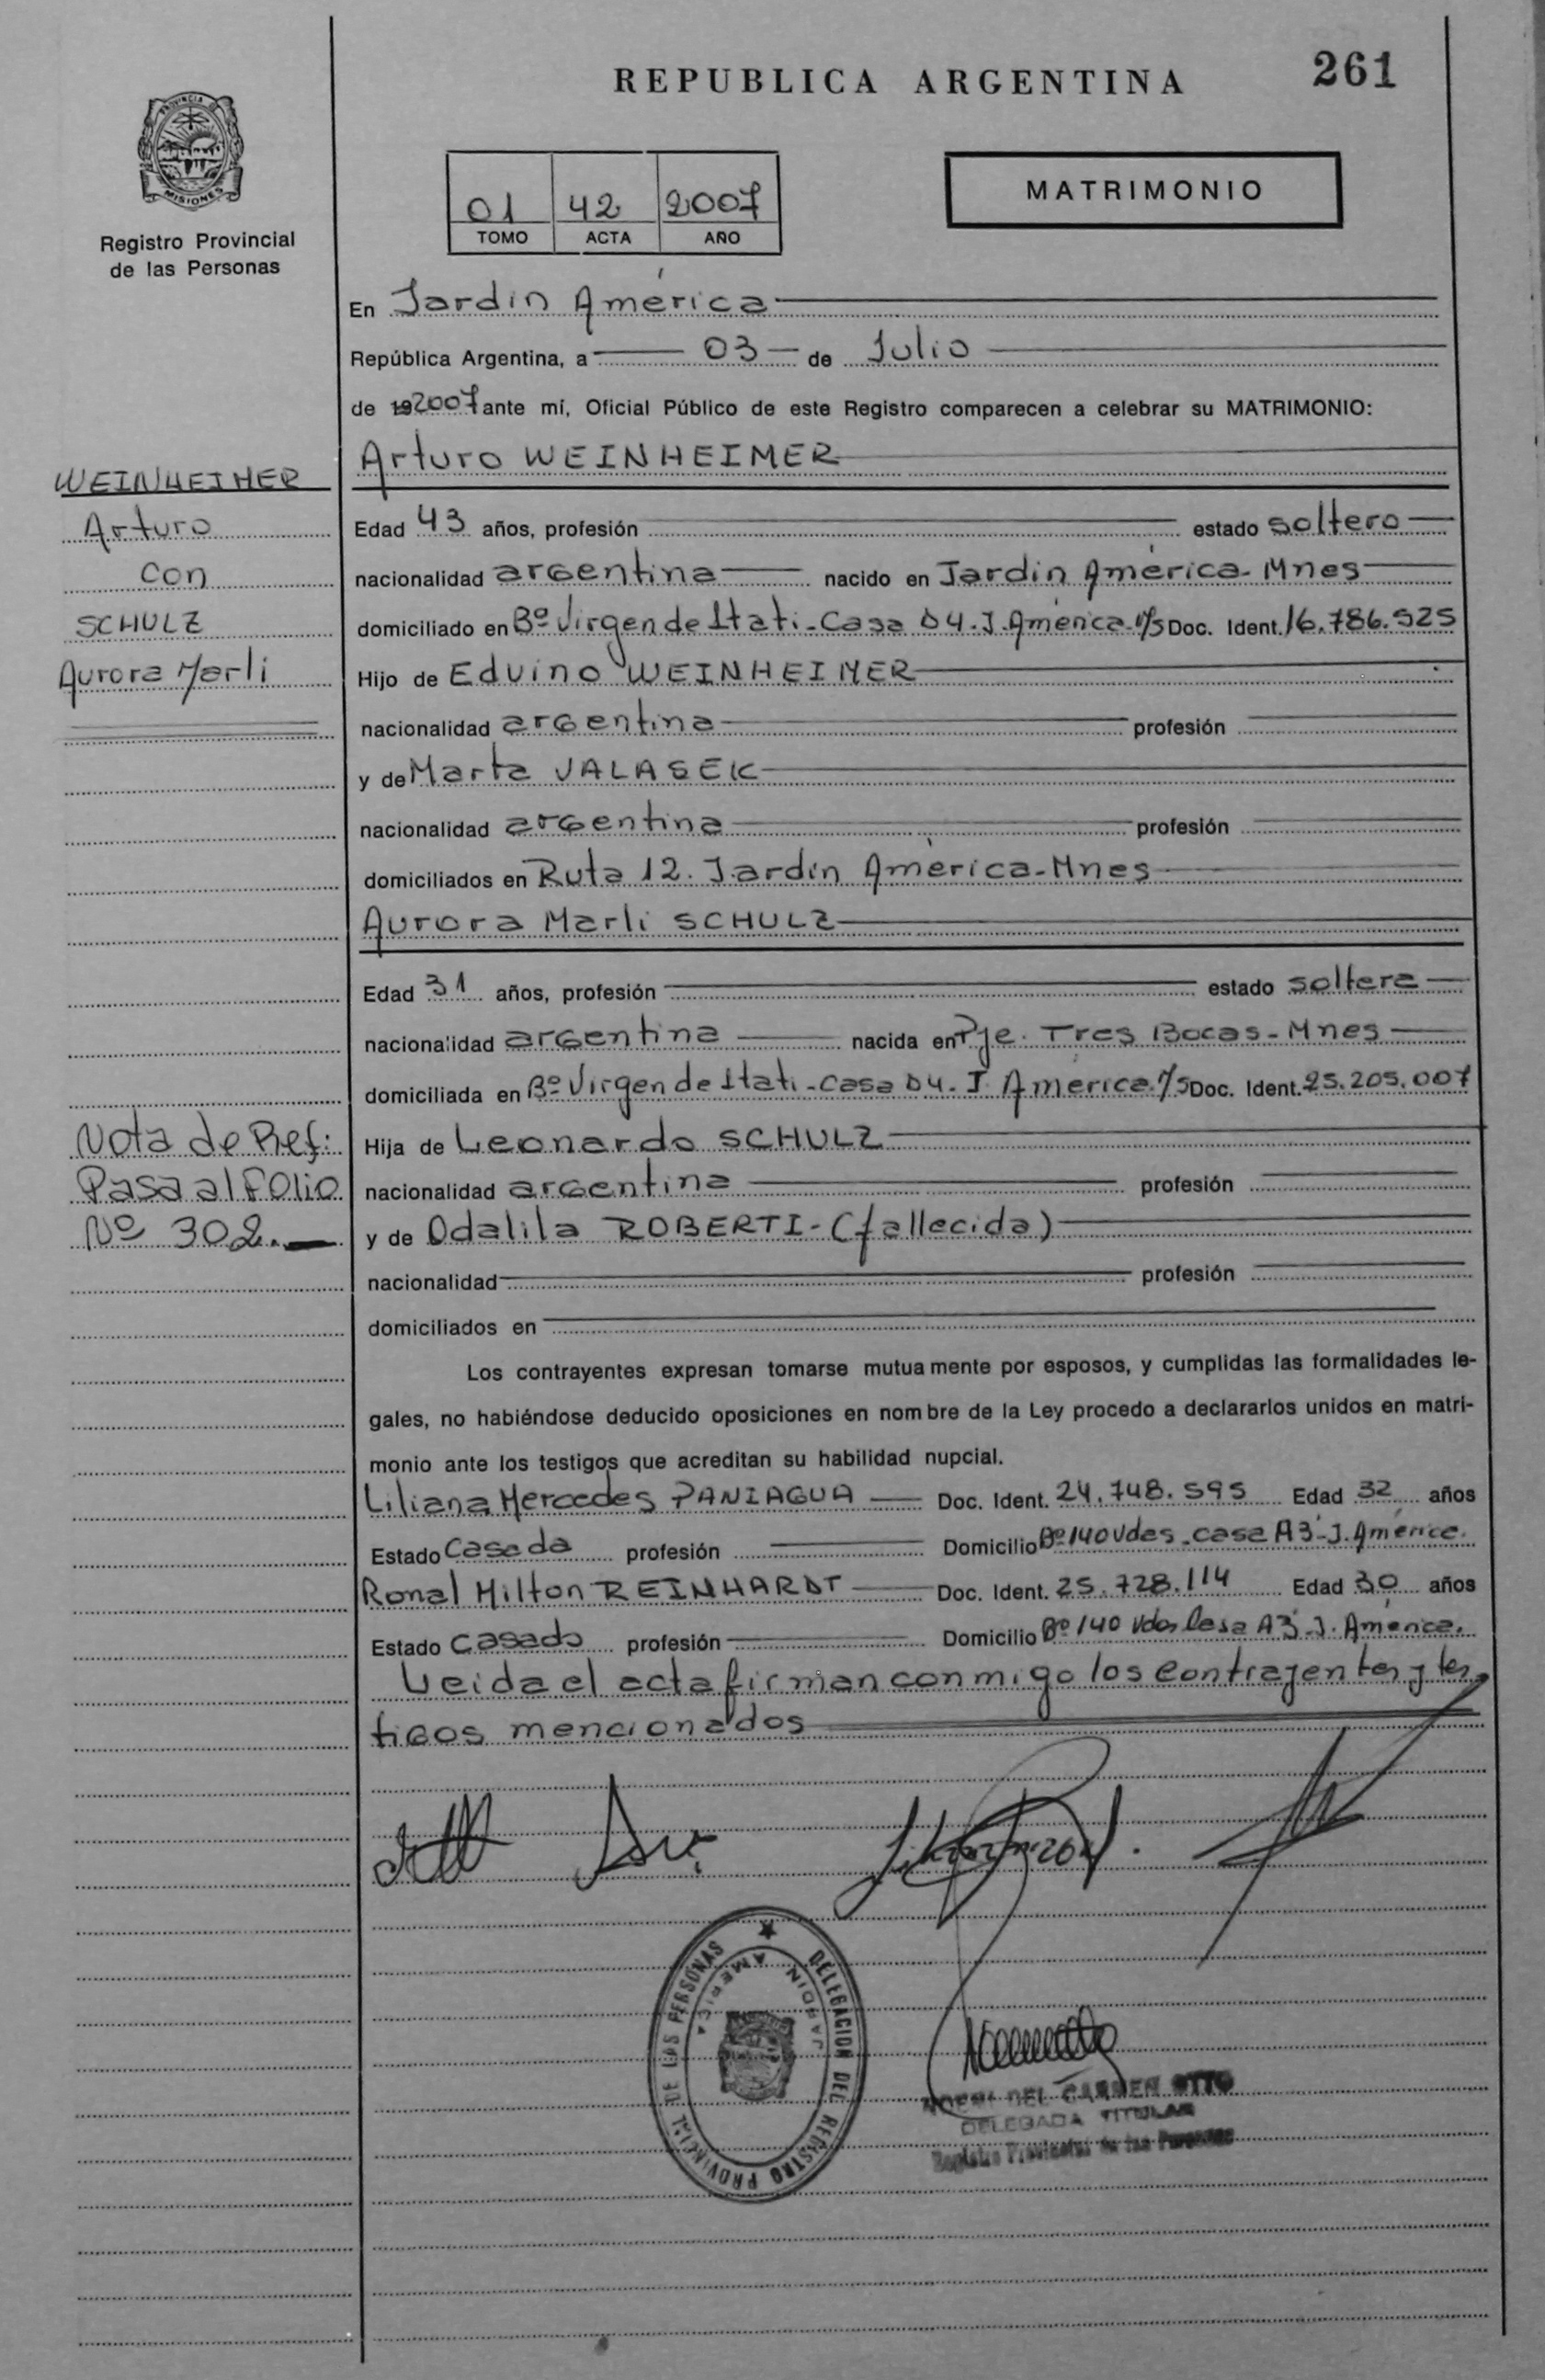 REPUBLICA ARGENTINA
261
PROVINCIA DE
MISIONES
Registro Provincial
de las Personas
01 42 2007
TOMO ACTA AÑO
MATRIMONIO
En Jardín América
República Argentina, a 03 de Julio
de 19 2007 ante mí, Oficial Público de este Registro comparecen a celebrar su MATRIMONIO:
Arturo WEINHEIMER
WEINHEIMER
Arturo
con
SCHULZ
Aurora Marli
Edad 43 años, profesión estado soltero
nacionalidad argentina nacido en Jardín América-Mnes
domiciliado en Bº Virgen de Itati-Casa 04. J. América Doc. Ident. 16.786.525
Hijo de Edvino WEINHEIMER
nacionalidad argentina profesión
y de Marta VALASEK
nacionalidad argentina profesión
domiciliados en Ruta 12. Jardín América-Mnes
Aurora Marli SCHULZ
Edad 31 años, profesión estado soltera
nacionalidad argentina nacida en Pje. Tres Bocas-Mnes
domiciliada en Bº Virgen de Itati-casa 04. J. América Doc. Ident. 25.205.007
Hija de Leonardo SCHULZ
nacionalidad argentina profesión
y de Odalila ROBERTI-(fallecida)
nacionalidad profesión
domiciliados en
Nota de Ref:
Pasa al Folio
Nº 302.
Los contrayentes expresan tomarse mutuamente por esposos, y cumplidas las formalidades le-
gales, no habiéndose deducido oposiciones en nombre de la Ley procedo a declararlos unidos en matri-
monio ante los testigos que acreditan su habilidad nupcial.
Liliana Mercedes PANIAGUA Doc. Ident. 24.748.595 Edad 32 años
Estado Casada profesión Domicilio Bº 140 Vdas-casa A3-J. América.
Ronal Milton REINHARDT Doc. Ident. 25.728.114 Edad 30 años
Estado casado profesión Domicilio Bº 140 Vdas Casa A3-J. América.
Leida el acta firman conmigo los contrayentes y tes
tigos mencionados
DELEGACION DEL REGISTRO PROVINCIAL DE LAS PERSONAS
JARDIN AMERICA
NOEMI DEL CARMEN OTTO
DELEGADA TITULAR
Registro Provincial de las Personas